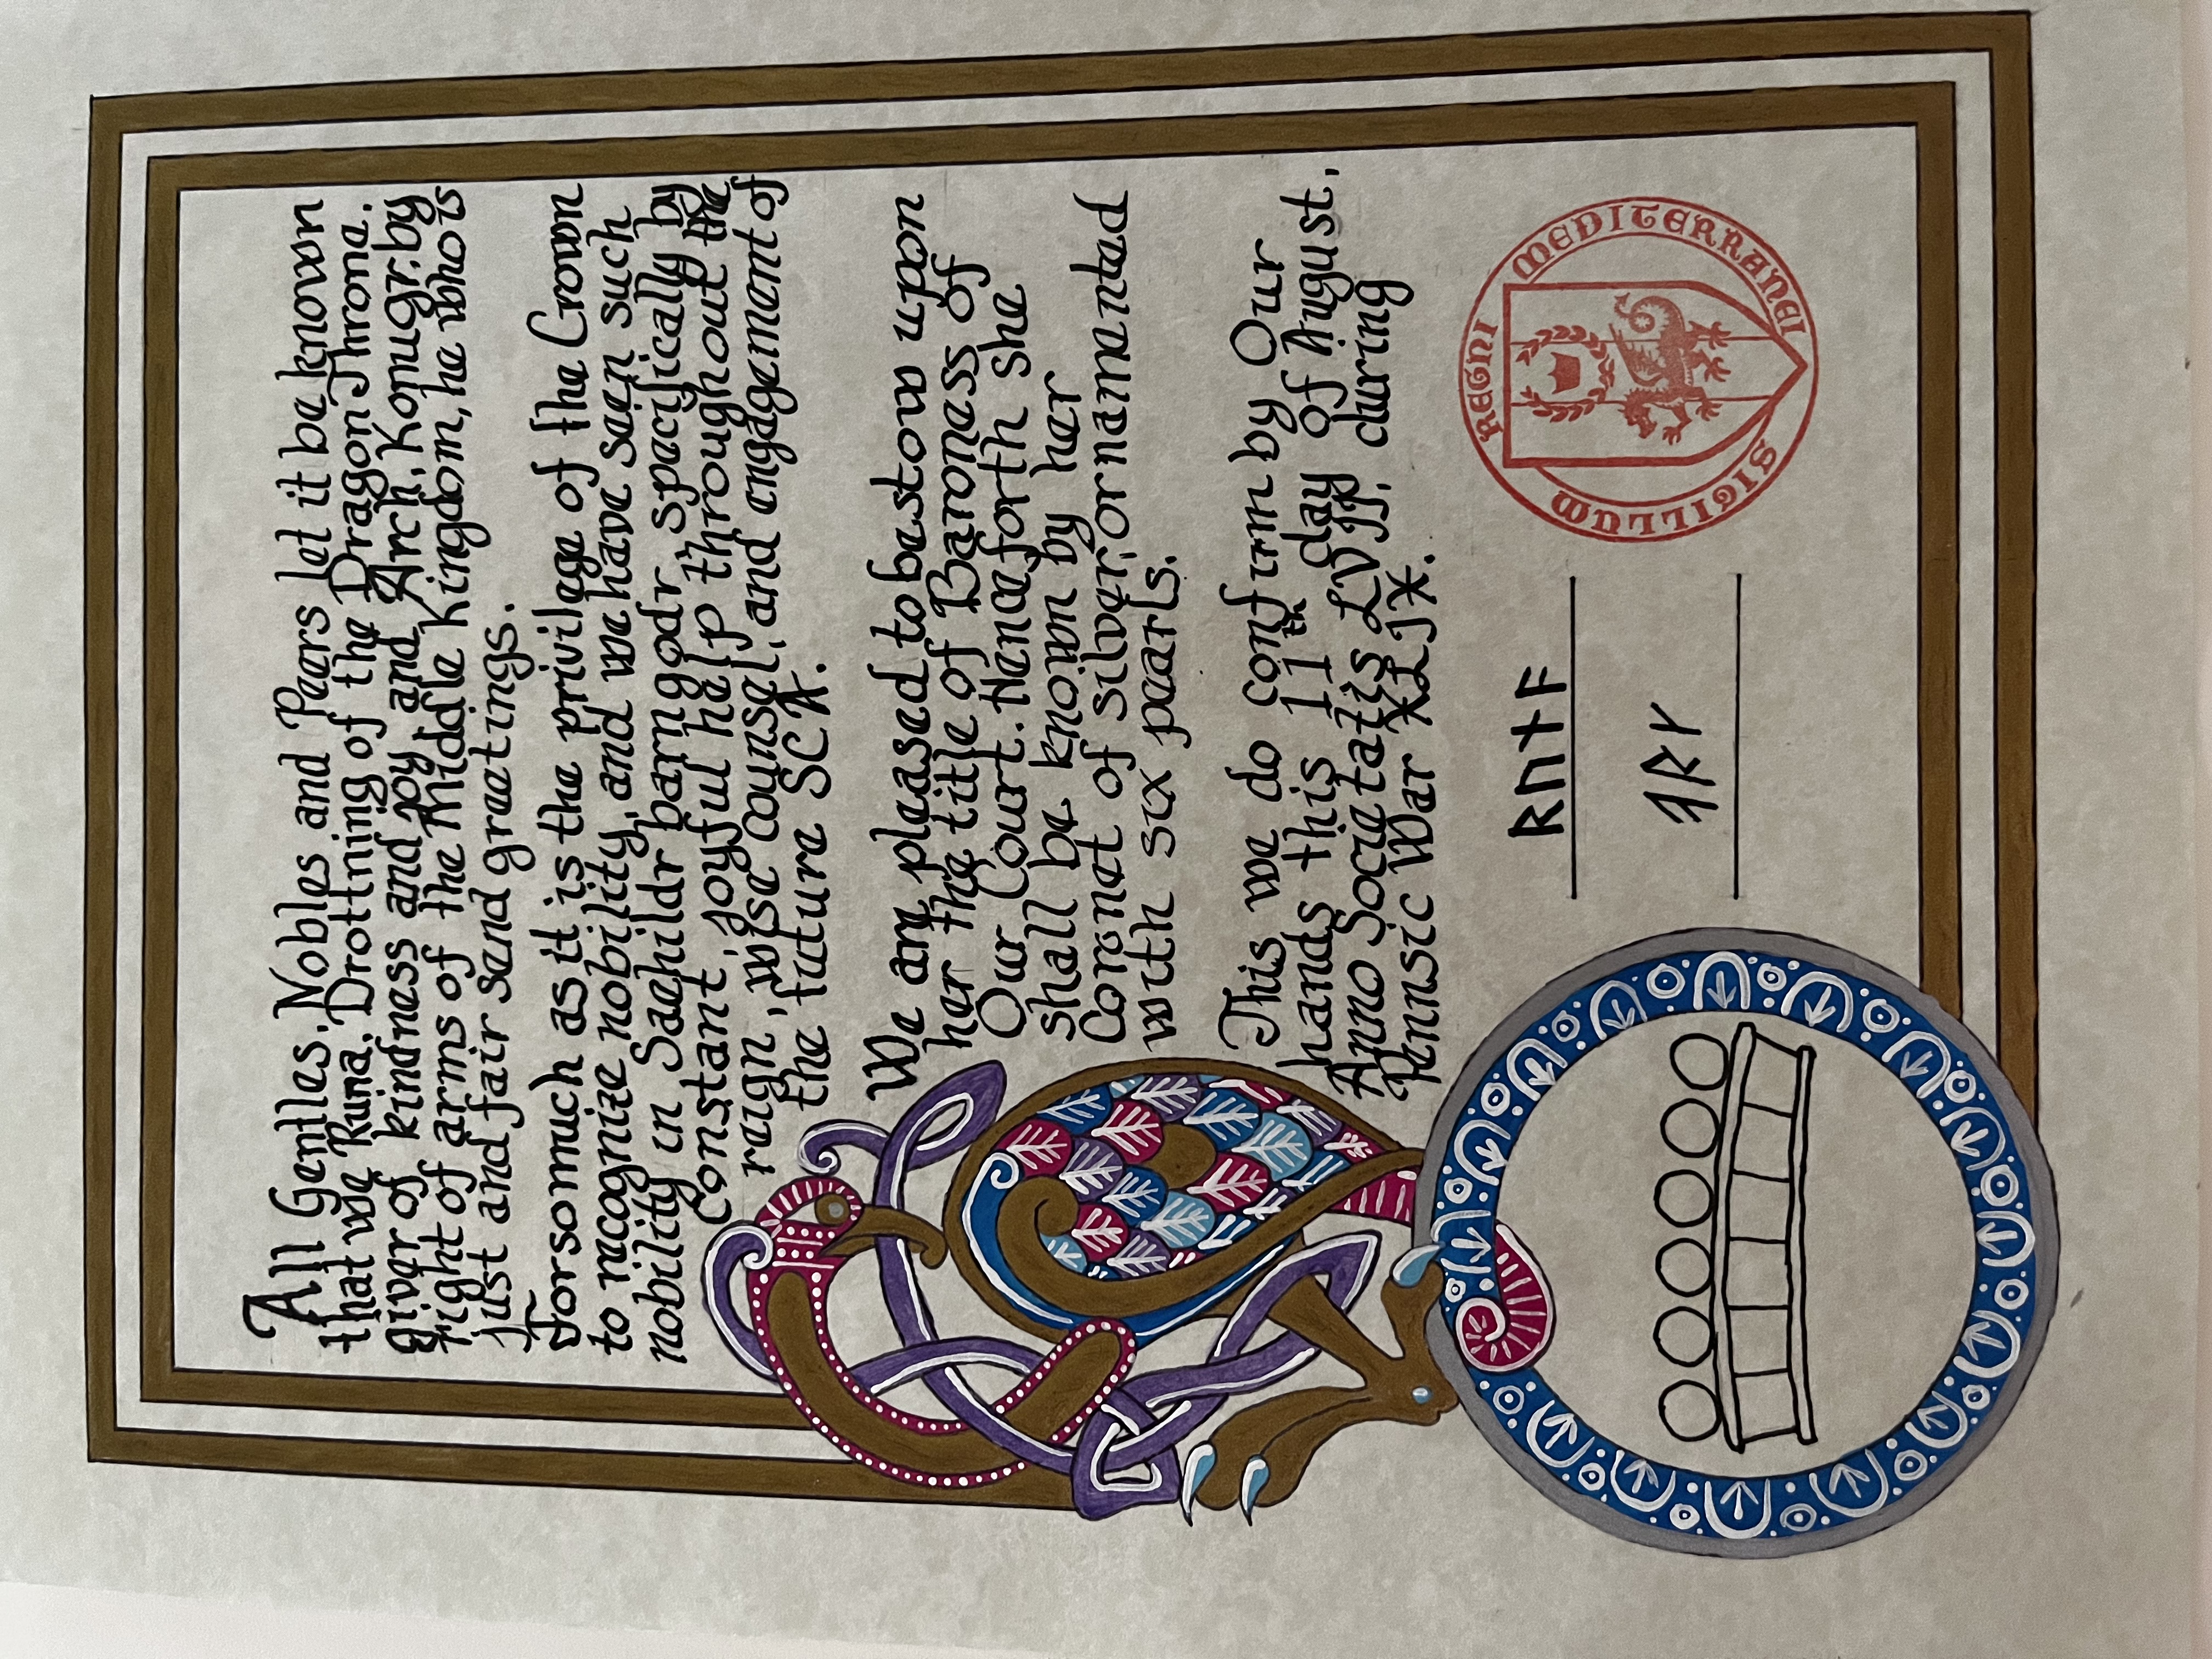 All Gentles, Nobles and Peers let it be known
that we Runa, Drottning of the Dragon Throne,
giver of kindness and joy and Arch, Konugr, by
right of arms of the Middle Kingdom, he who is
just and fair send greetings.
Forsomuch as it is the privilege of the Crown
to recognize nobility, and we have seen such
nobility in Saehildr barngodr, specifically by
Constant, joyful help throughout the
reign, wise counsel, and engagement of
the future SCA.
We are pleased to bestow upon
her the title of Baroness of
Our Court. Henceforth she
shall be known by her
Coronet of silver, ornamented
with six pearls.
This we do confirm by Our
hands this 11th day of August,
Anno Societatis LVIII, during
Pennsic War XLIX.
ᚱᚢᚾᚨ
REGNI MEDITERRANEI SIGILLUM